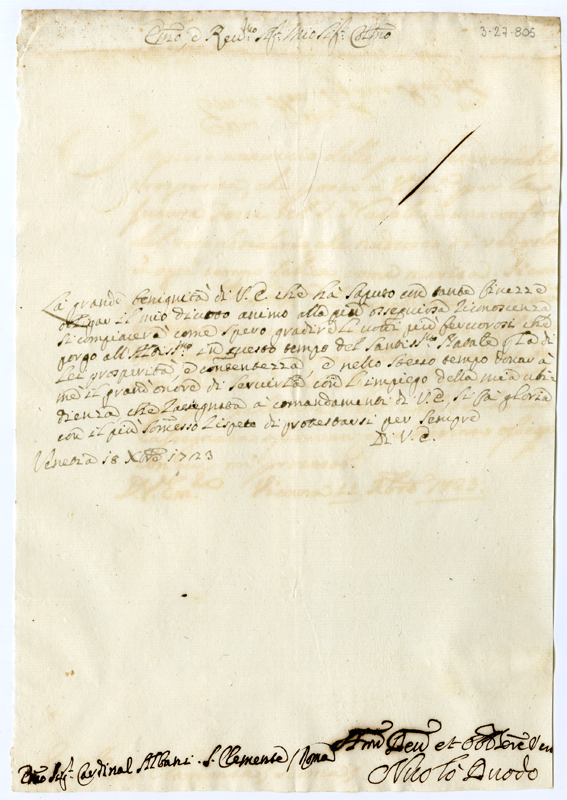 Emo, e Reu.mo Sig.r Mio Sig.r Col.mo
3-27-805
La grande benignità di V.E. che hà saputo con tante finezze
obligar il mio diuoto animo alla più ossequiosa riconoscenza
si compiacerà come spero gradire li uoti più feruorosi che
porgo all'Altiss.mo in questo tempo del Santiss.mo Natale p. la di
Lei prosperità e contentezza, e nello stesso tempo donar à
mè il grand'onore di seruirla con l'impiego della mia ubi-
dienza che rassegnata à comandamenti di V.E. si fà gloria
con il più somesso rispeto di protestarsi per sempre
Di V.E.
Venetia 18 Xbre 1723
Emo Sig.r Cardinal Albani. S. Clemente / Roma
Deu et Obb
Nicolò Duodo